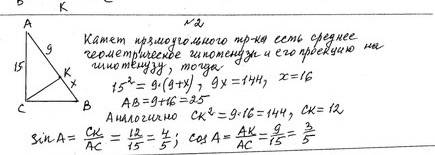 В K
№2
A
Катет прямоугольного тр-ка есть среднее
9
геометрическое гипотенузы и его проекцию на
гипотенузу, тогда
15
K
15² = 9·(9+x), 9x=144, x=16
x
AB=9+16=25
C B
Аналогично CK²=9·16=144, CK=12
sin A = CK/AC = 12/15 = 4/5; cos A = AK/AC = 9/15 = 3/5